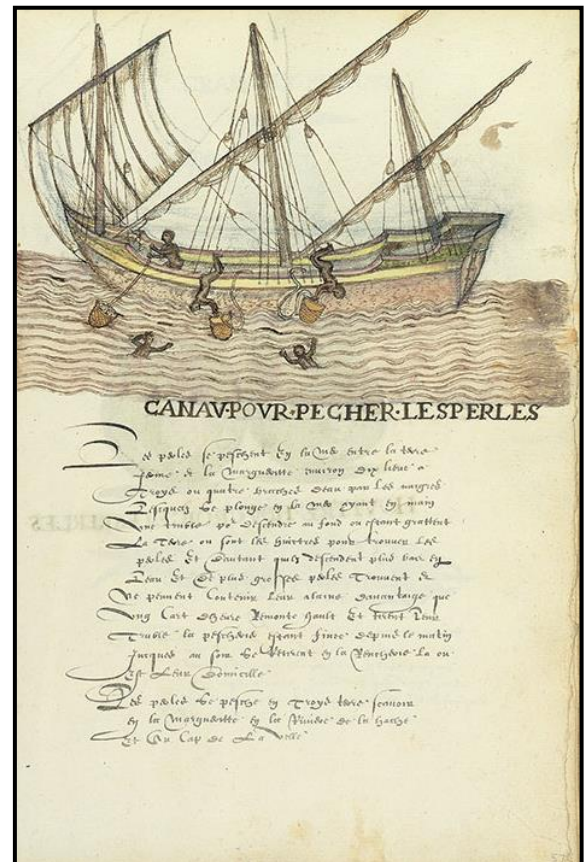 CANAV·POVR·PECHER·LESPERLES
Les perles se peschent En la mer entre la terre
ferme et la margueritte environ dix lieue a
Troys ou quatre brasches deau par les naigres
Lesiquelz se plonge en la mer ayant en main
une truble pour descendre au fond ou estant grattent
La Terre ou sont les huistres pour trouver Les
perles Et dautant quilz descendent plus bas en
Leau Et de plus grosses perles Trouvent Et
Ne peuvent Contenir Leur alaine davantaige que
ung Cart dheure Remonte hault Et tirent Leur
Truble la pescherie estant finie depuis le matin
Jucques au soir Se Retirent en la Rencherie La ou
Est Leur Domicille
Les perles Se pesche en Troys terre scauoir
en la marguerite en la Riviere de la hache
Et Au Cap de La velle